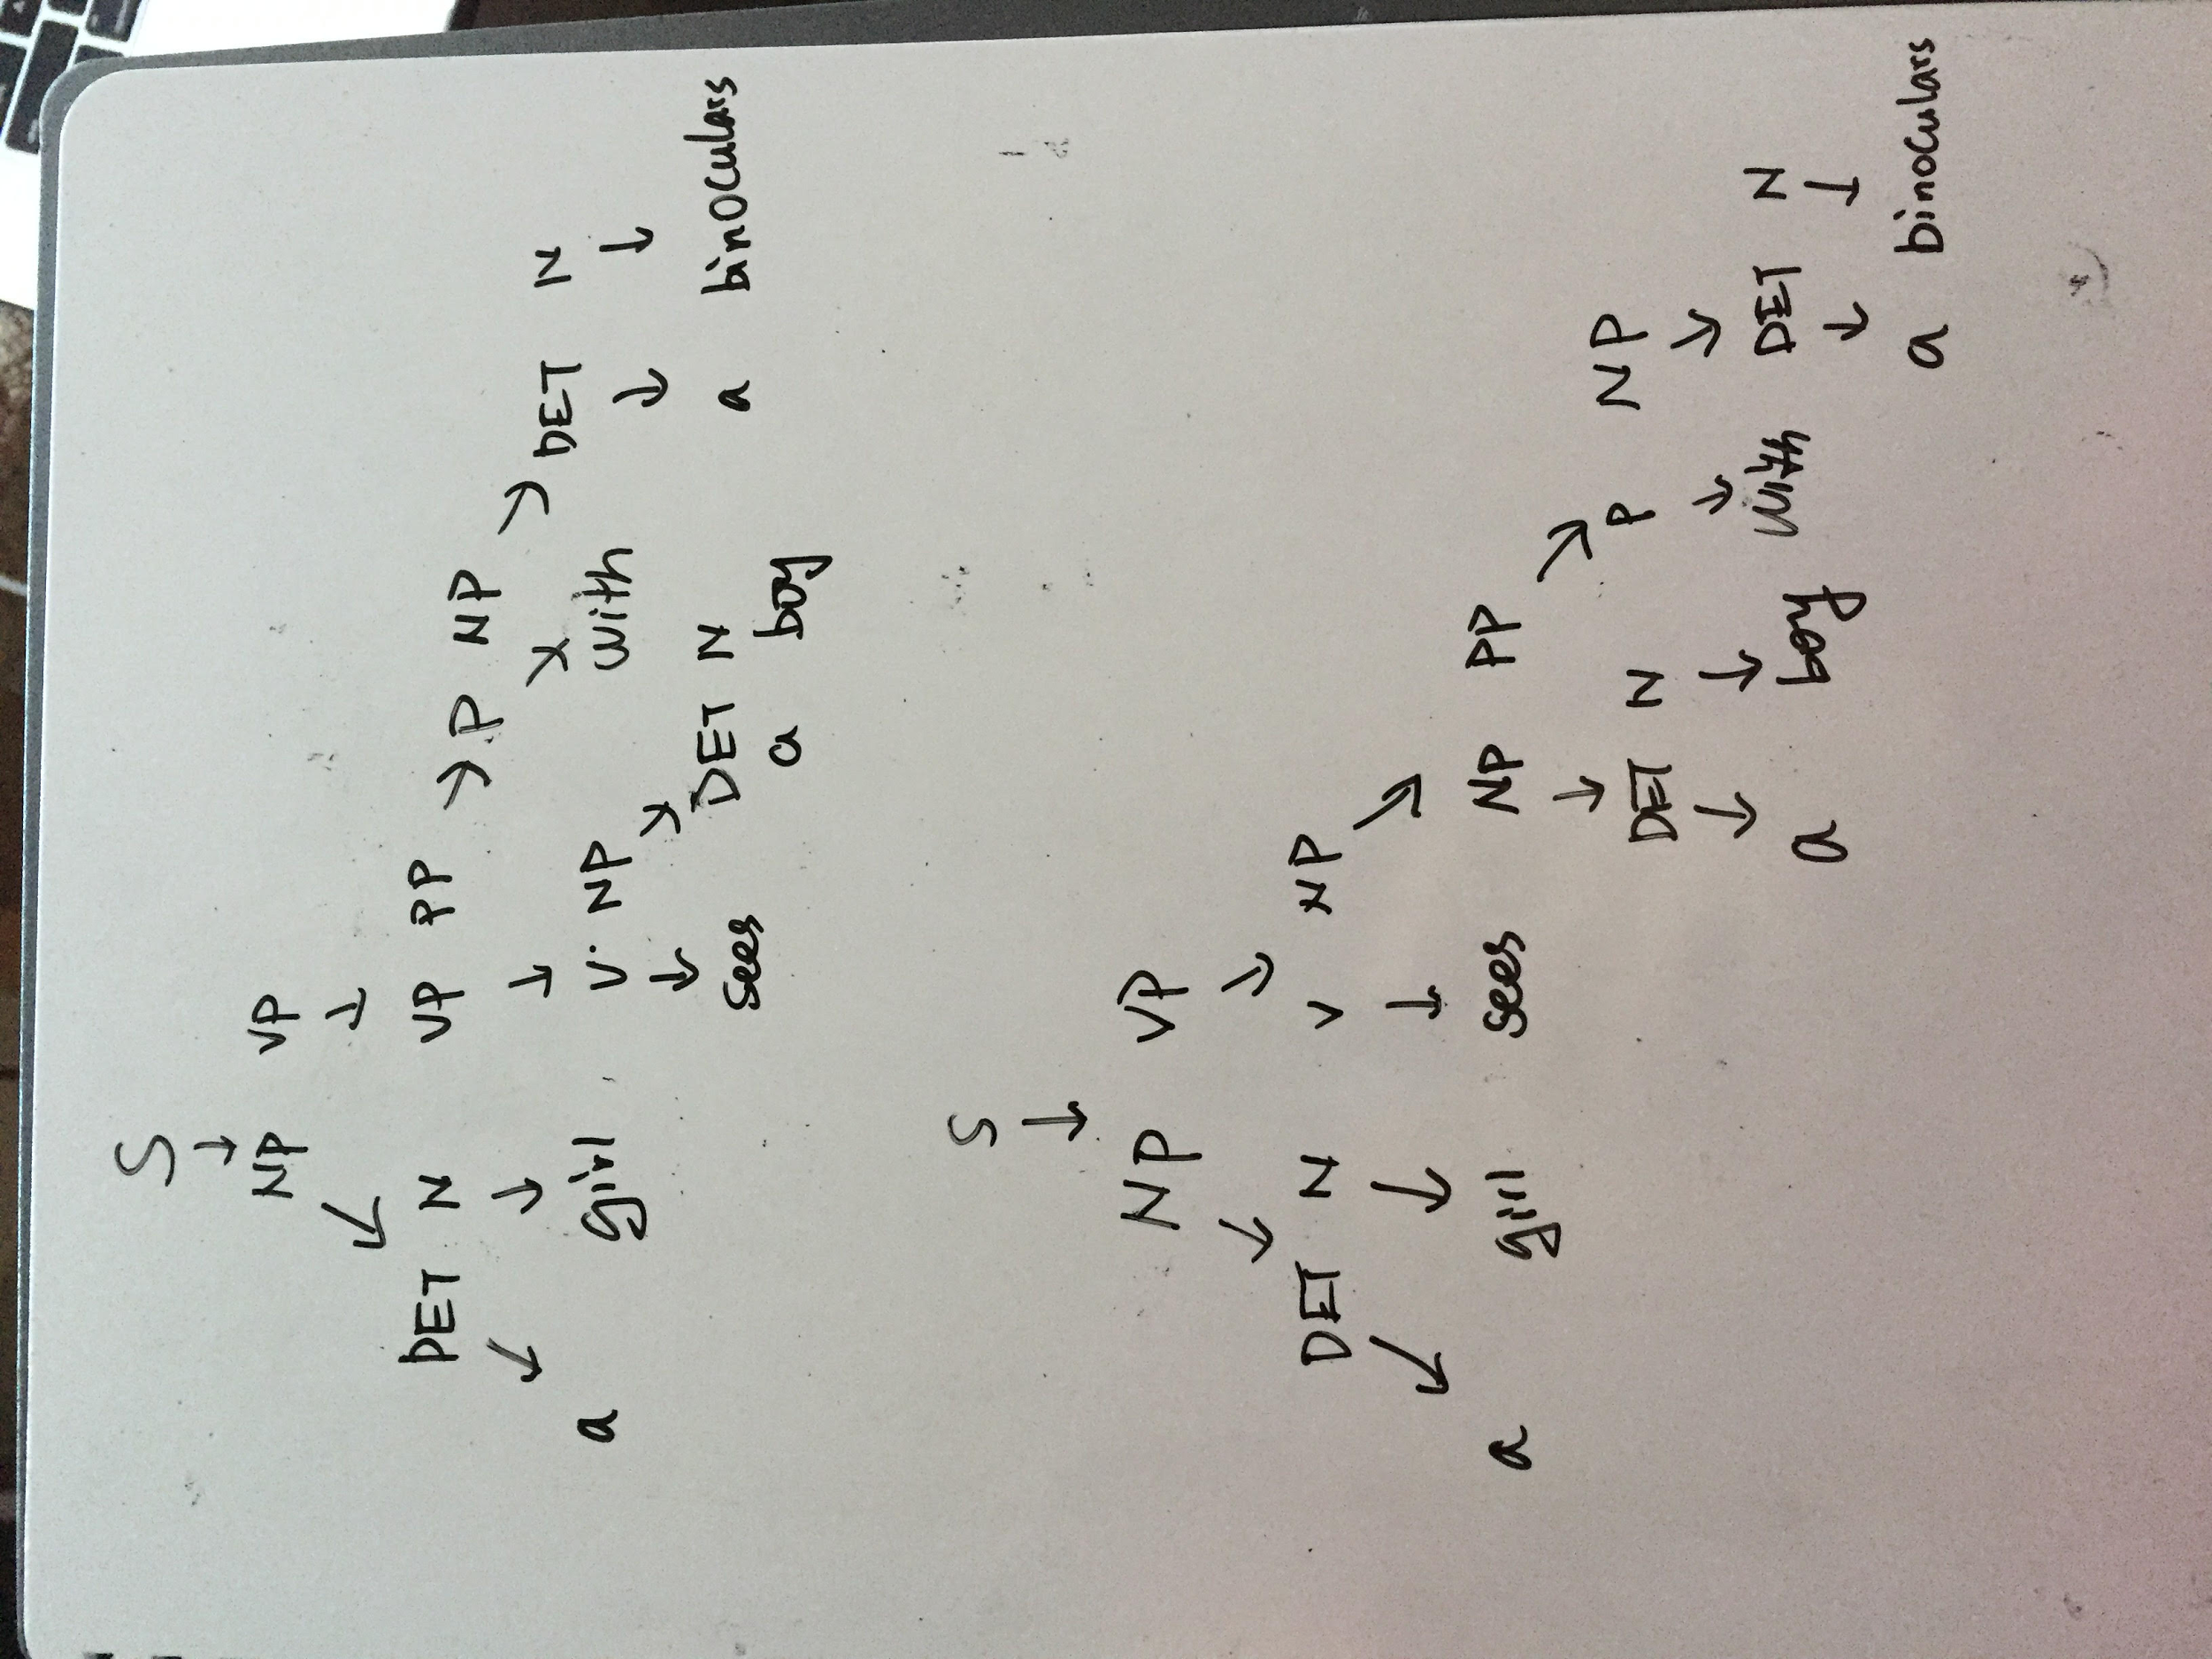 S
NP VP
DET N VP PP P NP
a girl V NP with DET N
sees DET N a binoculars
a boy
S
NP VP
DET N V NP
a girl sees NP PP
DET N P NP
a boy with DET N
a binoculars